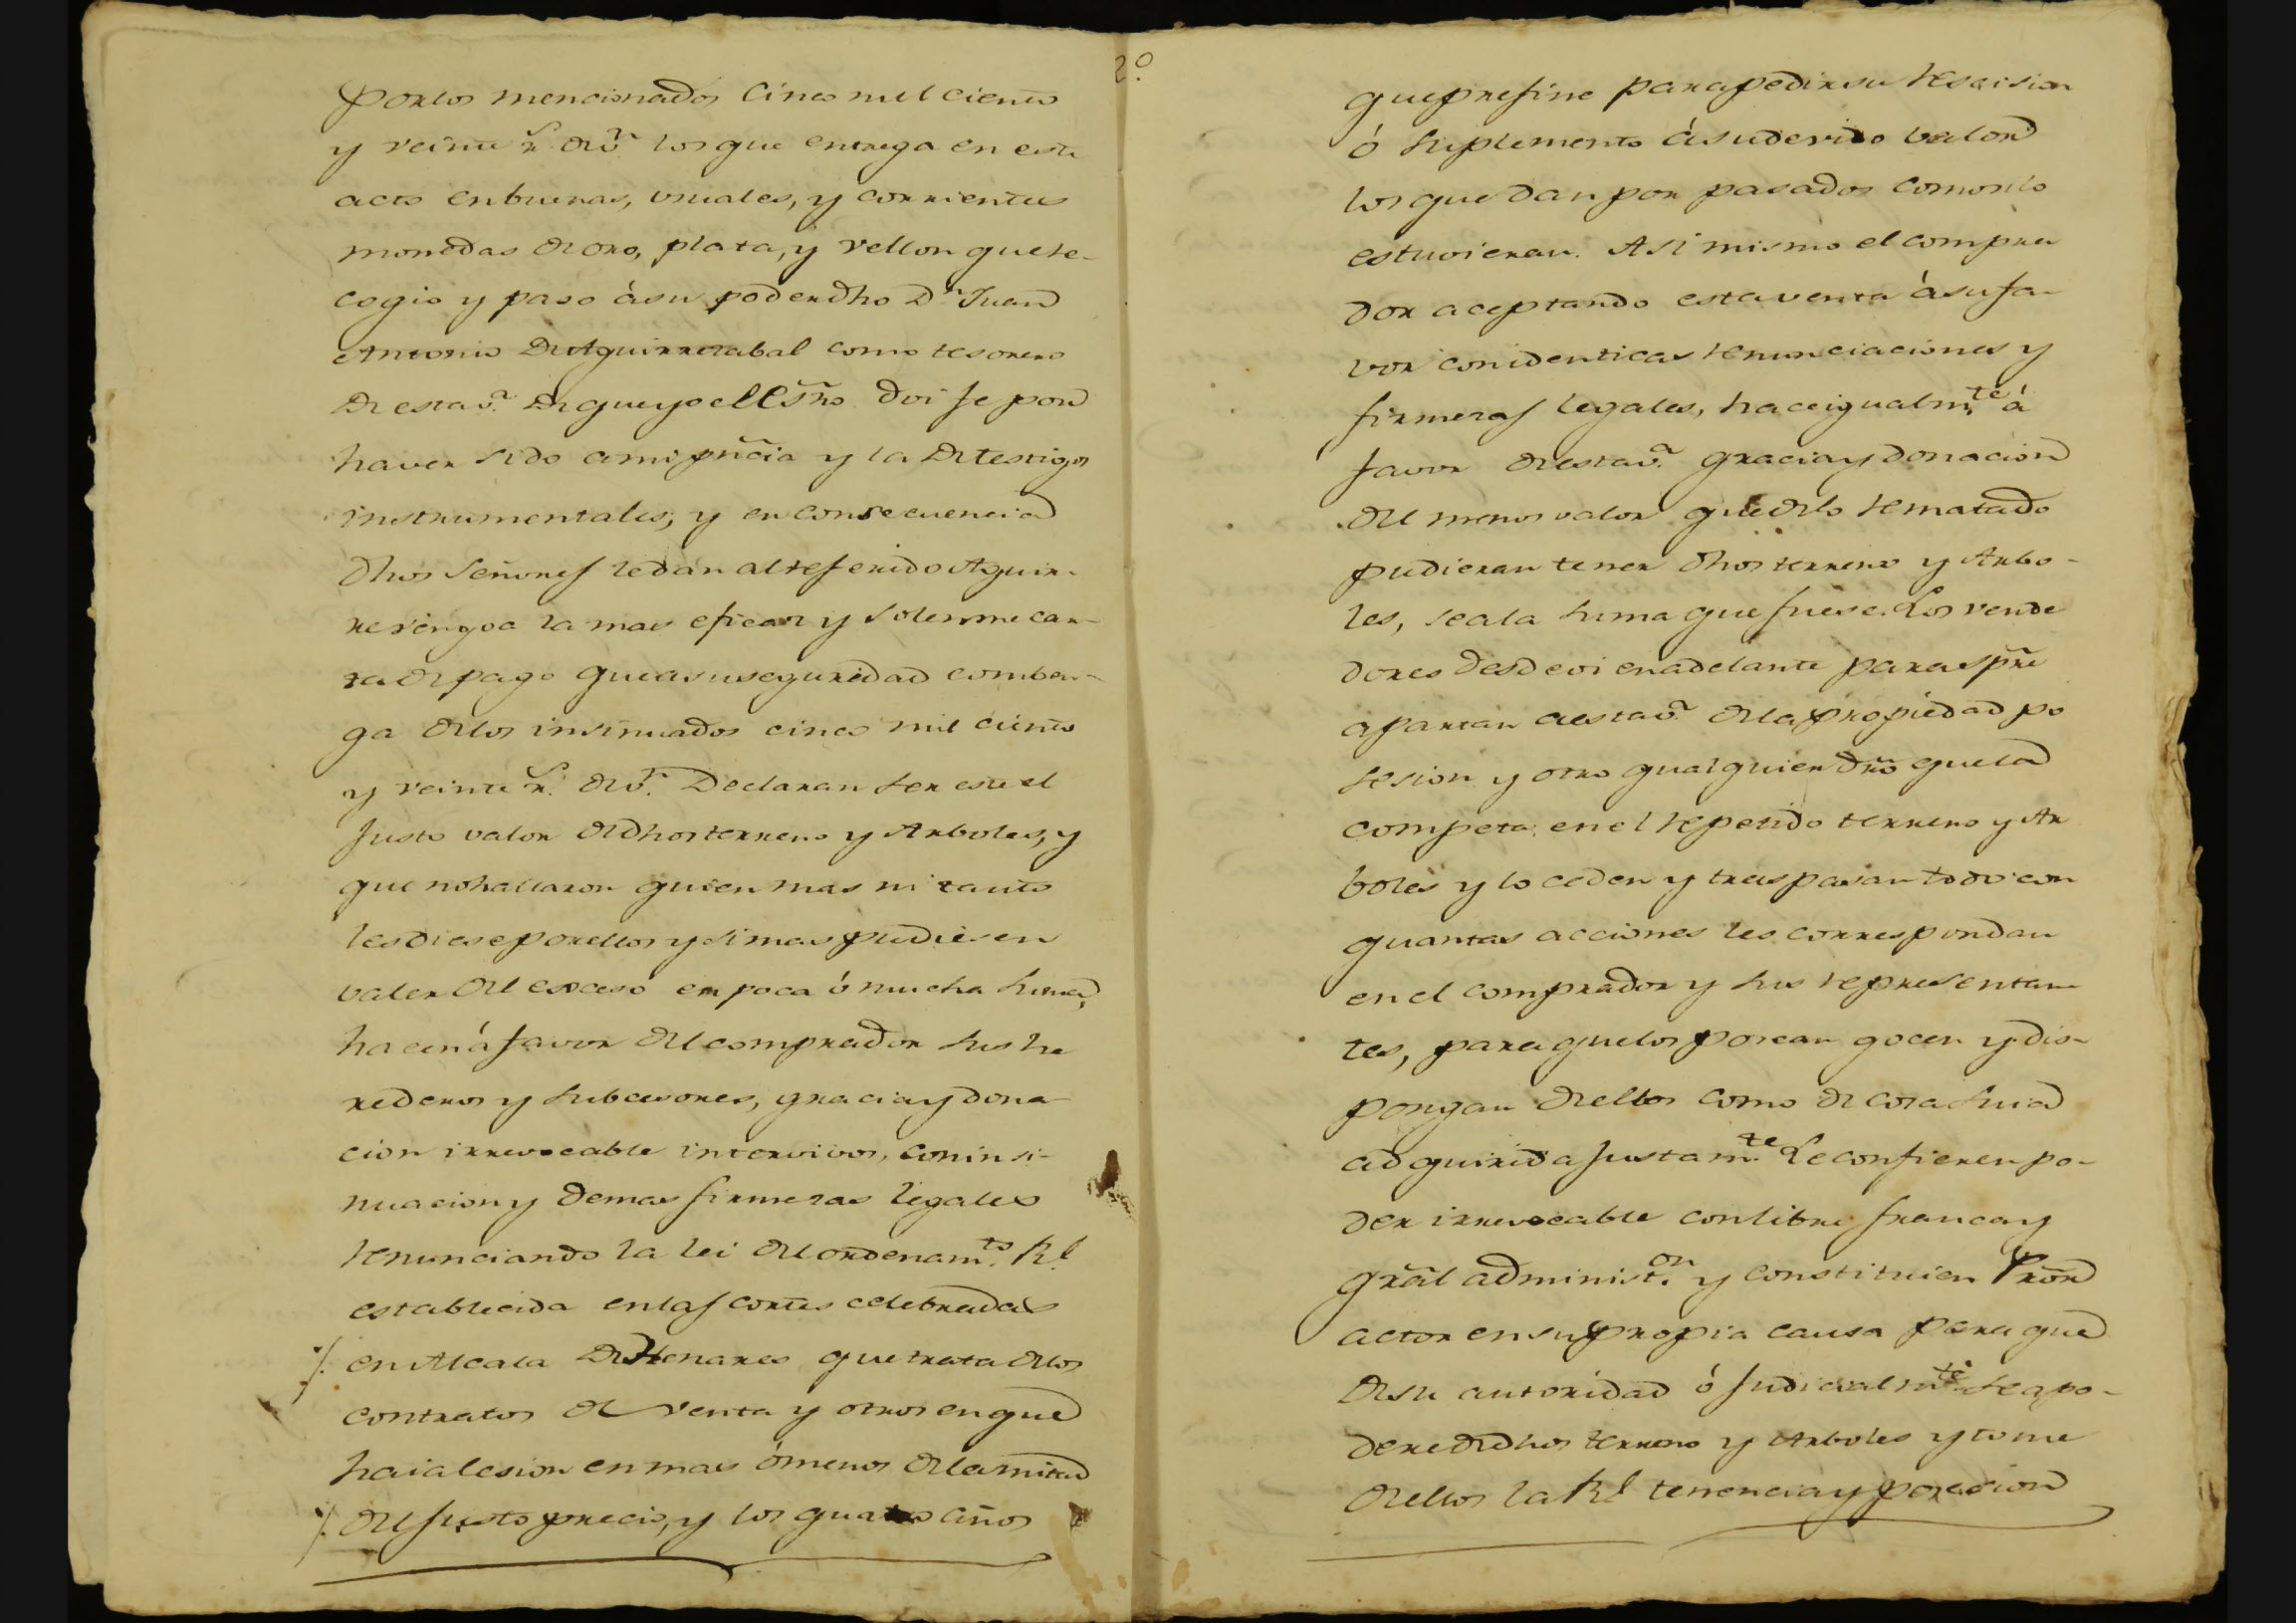 por los mencionados Cinco mil ciento
y veinte r.s de v.n los que entrega en este
acto en buenas, usuales, y corrientes
monedas de oro, plata, y vellon que re-
cogio y paso à su poder dho D.n Juan
Antonio de Aguirrezabal como tesorero
de esta v.a de que yo el Esño doi fe por
haver sido a mi pñcia y la de testigos
instrumentales; y en consecuencia
dhos Señores le dan al referido Aguir-
rezengoa la mas eficaz y solemne car-
ta de pago que a su seguridad comben-
ga de los insinuados cinco mil ciento
y veinte r.s de v.n Declaran ser este el
justo valor de dhos terreno y Arboles, y
que no hallaron quien mas ni tanto
les diese por ellos y si mas pudiesen
valer del exceso en poca ó mucha suma,
hacen á favor del comprador sus he
rederos y subcesores, gracia y dona
cion irrevocable intervivos, con insi-
nuacion y demas firmezas legales
renunciando la lei del ordenam.to R.l
establecida en las cortes celebradas
en Alcala de Henares que trata de los
contratos de venta y otros en que
haia lesion en mas ó menos de la mitad
del justo precio, y los quatro años
2º
que prefine para pedir su rescision
ó suplemento á su devido valor
los que dan por pasados como si lo
estuvieran. Asi mismo el compra
dor aceptando esta venta à su fa-
vor con identicas renunciaciones y
firmezas legales, hace igualm.te á
favor de esta v.a gracia y donacion
del menos valor que de lo rematado
pudieran tener dhos terreno y Arbo-
les, sea la suma que fuese. Los vende
dores desde oi en adelante para spre
apartan a esta v.a de la propiedad po
sesion y otro qualquier dño que la
competa en el repetido terreno y Ar
boles y lo ceden y traspasan todo con
quantas acciones les correspondan
en el comprador y sus representan-
tes, para que los posean gocen y dis-
pongan de ellos como de cosa suia
adquirida justam.te Le confieren po-
der irrevocable con libre franca y
grãl administ.on y constituien Prõr
actor en su propia causa para que
de su autoridad ó judicialm.te se apo-
dere de dhos terreno y Arboles y tome
de ellos la R.l tenencia y posesion